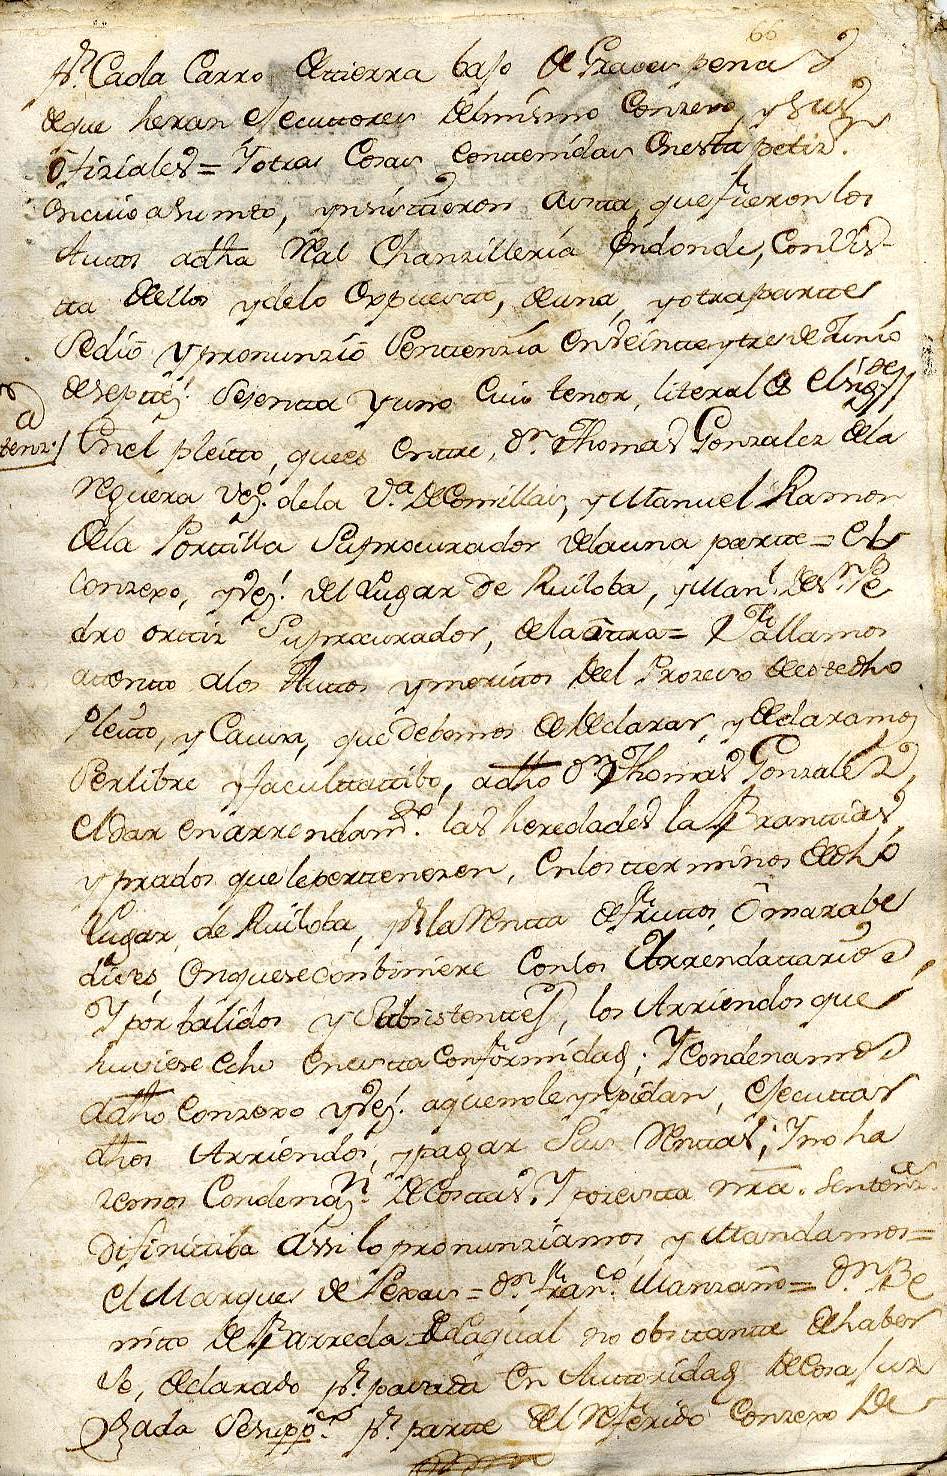 66
pr. Cada Carro de tierra bajo de Graves penas
de que heran ejecuttores del mismo Conzexo, y sus
Ofiziales = Y otras Cosas contenidas en esta petiz.
en cuio asumto, ynsistieron asta, que fueron los
Auttos a dha Real Chanzilleria en donde, con vis-
tta de ellos y de lo expuestto, de una, y otra partte
se dio y pronunzio Sentenzia en veintte y tres de Junio
de septtes. sesentta y uno cuio tenor, literal es el sigte
Sentenz.
En el pleitto, que es entre, Dn. Thomas Gonzalez de la
Reguera vezo. de la Va. de Comillas, y Manuel Ramon
de la Portilla su procurador de la una partte = el
Conzexo, y vezs. del Lugar de Ruiloba, y Manl. de Sn. Pe
dro orttiz su procurador, de la ottra = Fallamos
atentto a los Auttos y merittos del Prozeso de este dho
Pleitto, y Causa, que debemos de declarar, y declaramos
Ser libre y facultattibo, a dho Dn Thomas Gonzalez,
el dar en arrendamto. las heredades labrantias,
y prados que le pertenezen, en los tterminos de dho
Lugar, de Ruiloba, pr la Rentta de fruttos, o marabe
dises, en que se conbiniere con los Arrendattarios,
Y por balidos y subsistenttes, los Arriendos que
huviese echo en estta conformidad; Y condenamos
a dho Conzexo y vezs. a que no le ynpidan, ejecuttar
dhos Arriendos, y pagar sus Renttas; Y no ha
zemos Condenazn. de costtas. Y por estta nra. Sentenza.
difinittiba assi lo pronunziamos, y Mandamos =
el Marques de = Dn. Franco. Manzano = Dn. Be
nitto de Barreda = de la qual no obstantte de haber
se, declarado pr. pasada en Autoridad de cosa Juz
gada se supco. pr. partte del Referido Conzexo de